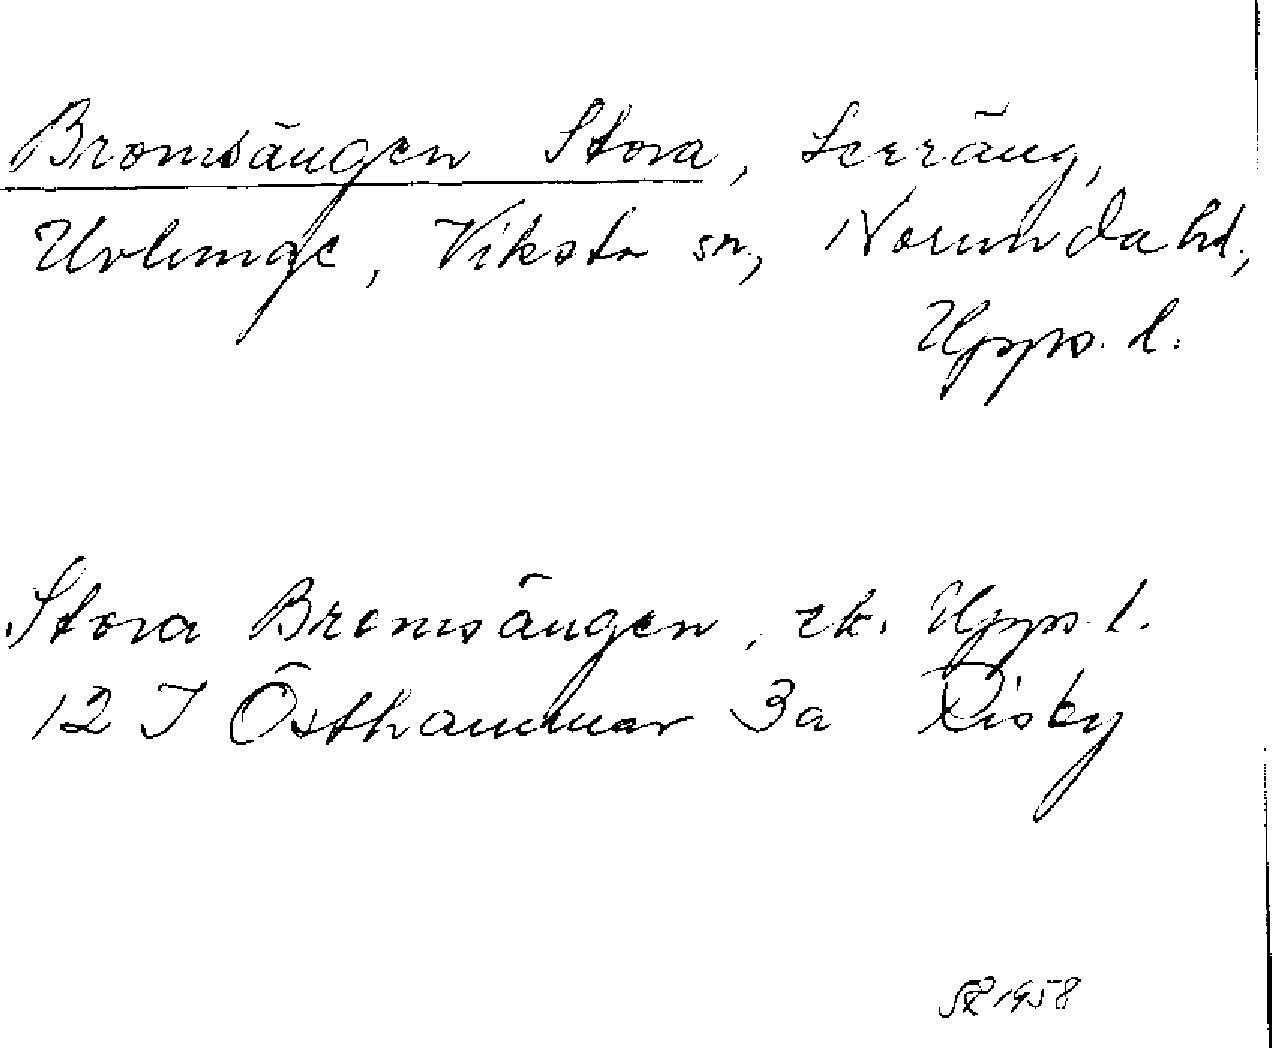 Bromsängen Stora, Seeräng,
Urlunge, Viksta sn, Norunda hd,
Upps. l.
Stora Bromsängen, ek. Upps. l.
12 I Östhammar 3a Risby
1958